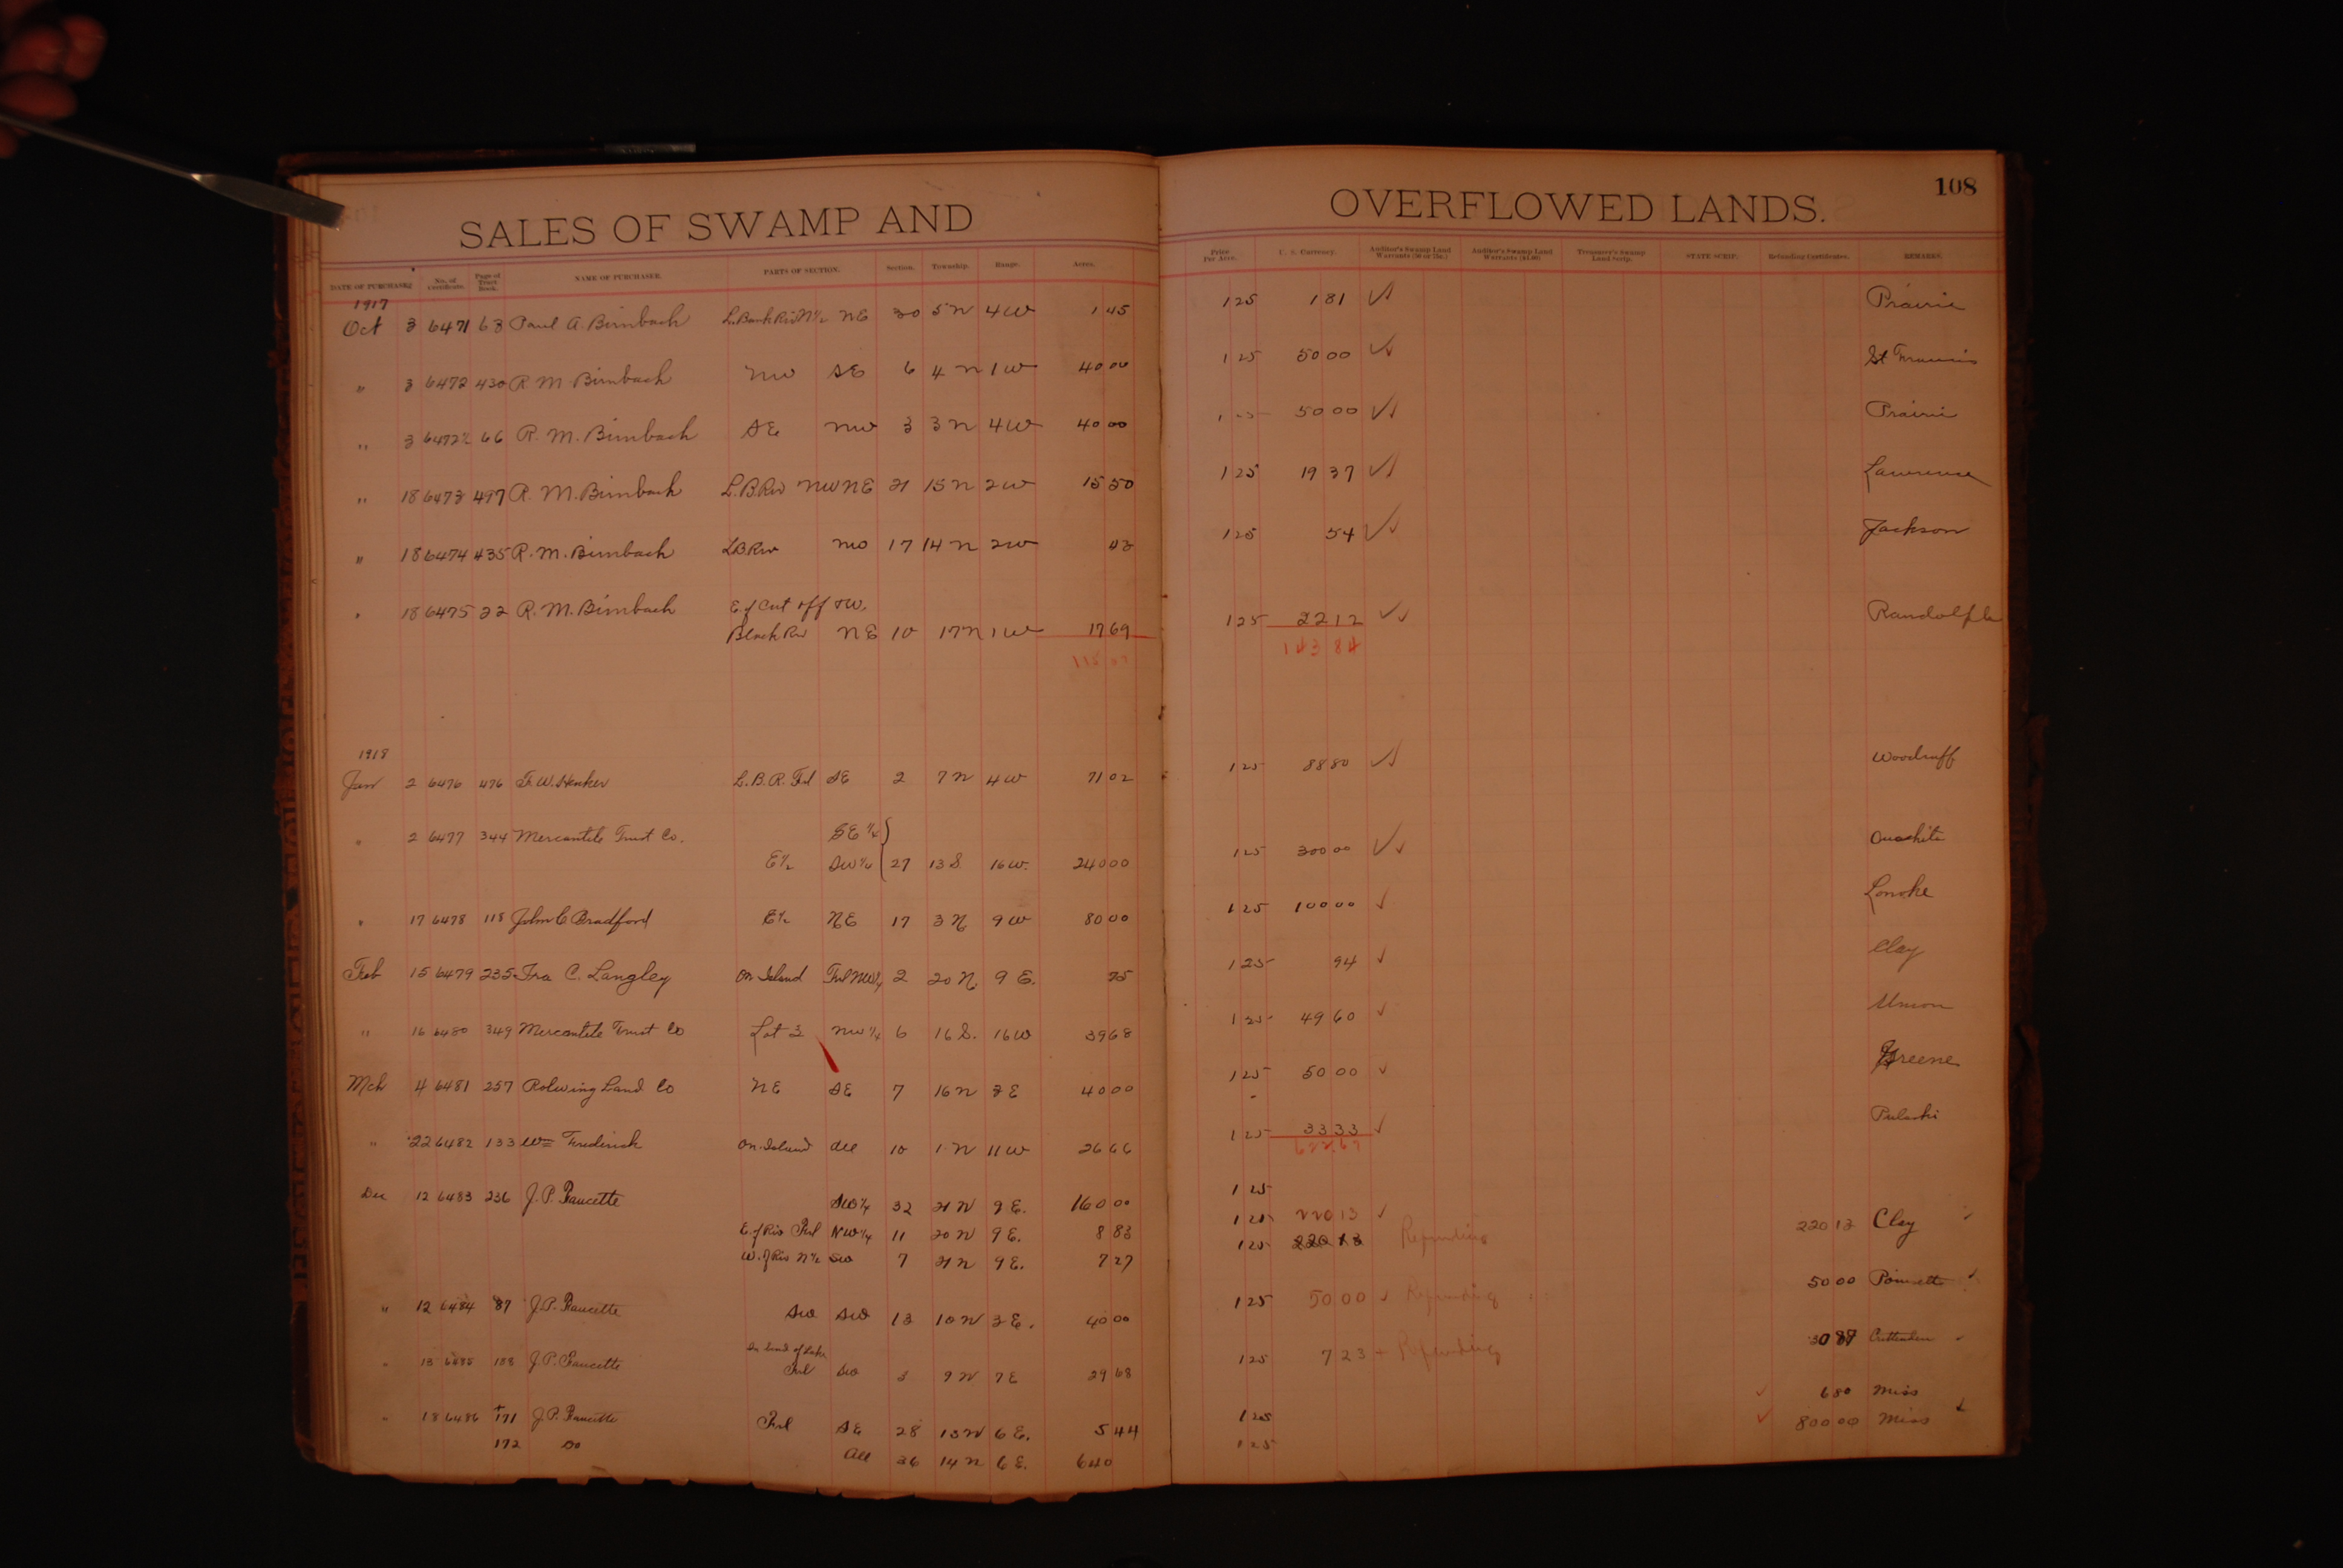 SALES OF SWAMP AND OVERFLOWED LANDS. 108
DATE OF PURCHASE. No. of Certificate. Page of Tract Book. NAME OF PURCHASER. PARTS OF SECTION. Section. Township. Range. Acres. Price Per Acre. U. S. Currency. Auditor's Swamp Land Warrants (50 or 75c.) Auditor's Swamp Land Warrants ($1.00) Treasurer's Swamp Land Scrip. STATE SCRIP. Refunding Certificates. REMARKS.
1917
Oct 3 6471 63 Paul A. Birnbach L. Bank Riv N½ NE 30 5N 4W 1 45 1 25 1 81 Prairie
" 3 6472 430 R M Birnbach NW SE 6 4N 1W 40 00 1 25 50 00 St Francis
" 3 6472½ 66 R. M. Birnbach SE NW 3 3N 4W 40 00 50 00 Prairie
" 18 6473 497 R. M. Birnbach L.B. Riv NW NE 21 15N 2W 15 50 1 25 19 37 Lawrence
" 18 6474 435 R. M. Birnbach LB Riv NW 17 14N 2W 43 1 25 54 Jackson
" 18 6475 22 R. M. Birnbach E of Cut off & W.
Black Riv NE 10 17N 1W 17 69 1 25 22 12 Randolph
143 84
1918
Jan 2 6476 476 F. W. Henker L. B. R. Frl SE 2 7N 4W 71 02 1 25 88 80 Woodruff
" 2 6477 344 Mercantile Trust Co. SE ¼
E½ SW¼ 27 13 S. 16 W. 240 00 1 25 300 00 Ouachita
" 17 6478 118 John C Bradford E½ NE 17 3N 9W 80 00 1 25 100 00 Lonoke
Feb 15 6479 235 Ira C. Langley on Island Frl NW¼ 2 20 N. 9 E. 75 1 25 94 Clay
" 16 6480 349 Mercantile Trust Co Lot 3 NW ¼ 6 16 S. 16W 39 68 1 25 49 60 Union
Mch 4 6481 257 Rolwing Land Co NE SE 7 16N 3E 40 00 1 25 50 00 Greene
" 22 6482 133 Wm Frederick on Island all 10 1N 11W 26 66 1 25 33 33 Pulaski
622.67
Dec 12 6483 236 J. P. Faucette SW¼ 32 21N 9E. 160 00 1 25
E. of Riv Frl NW¼ 11 20N 9E. 8 83 1 25 220 13 220 13 Clay
W. of Riv N½ SW 7 21N 9E. 7 27 1 25 220 13 Refunding
" 12 6484 87 J. P. Faucette SW SW 13 10N 3E. 40 00 1 25 50 00 Refunding 50 00 Poinsett
" 13 6485 188 J. P. Faucette Frl SW 3 9N 7E 29 68 1 25 7 23 Refunding Crittenden
" 18 6486 171 J. P. Faucette Frl SE 28 13N 6E. 5 44 1 25 6 80 Miss
172 Do All 36 14N 6E. 640 1 25 800 00 Miss